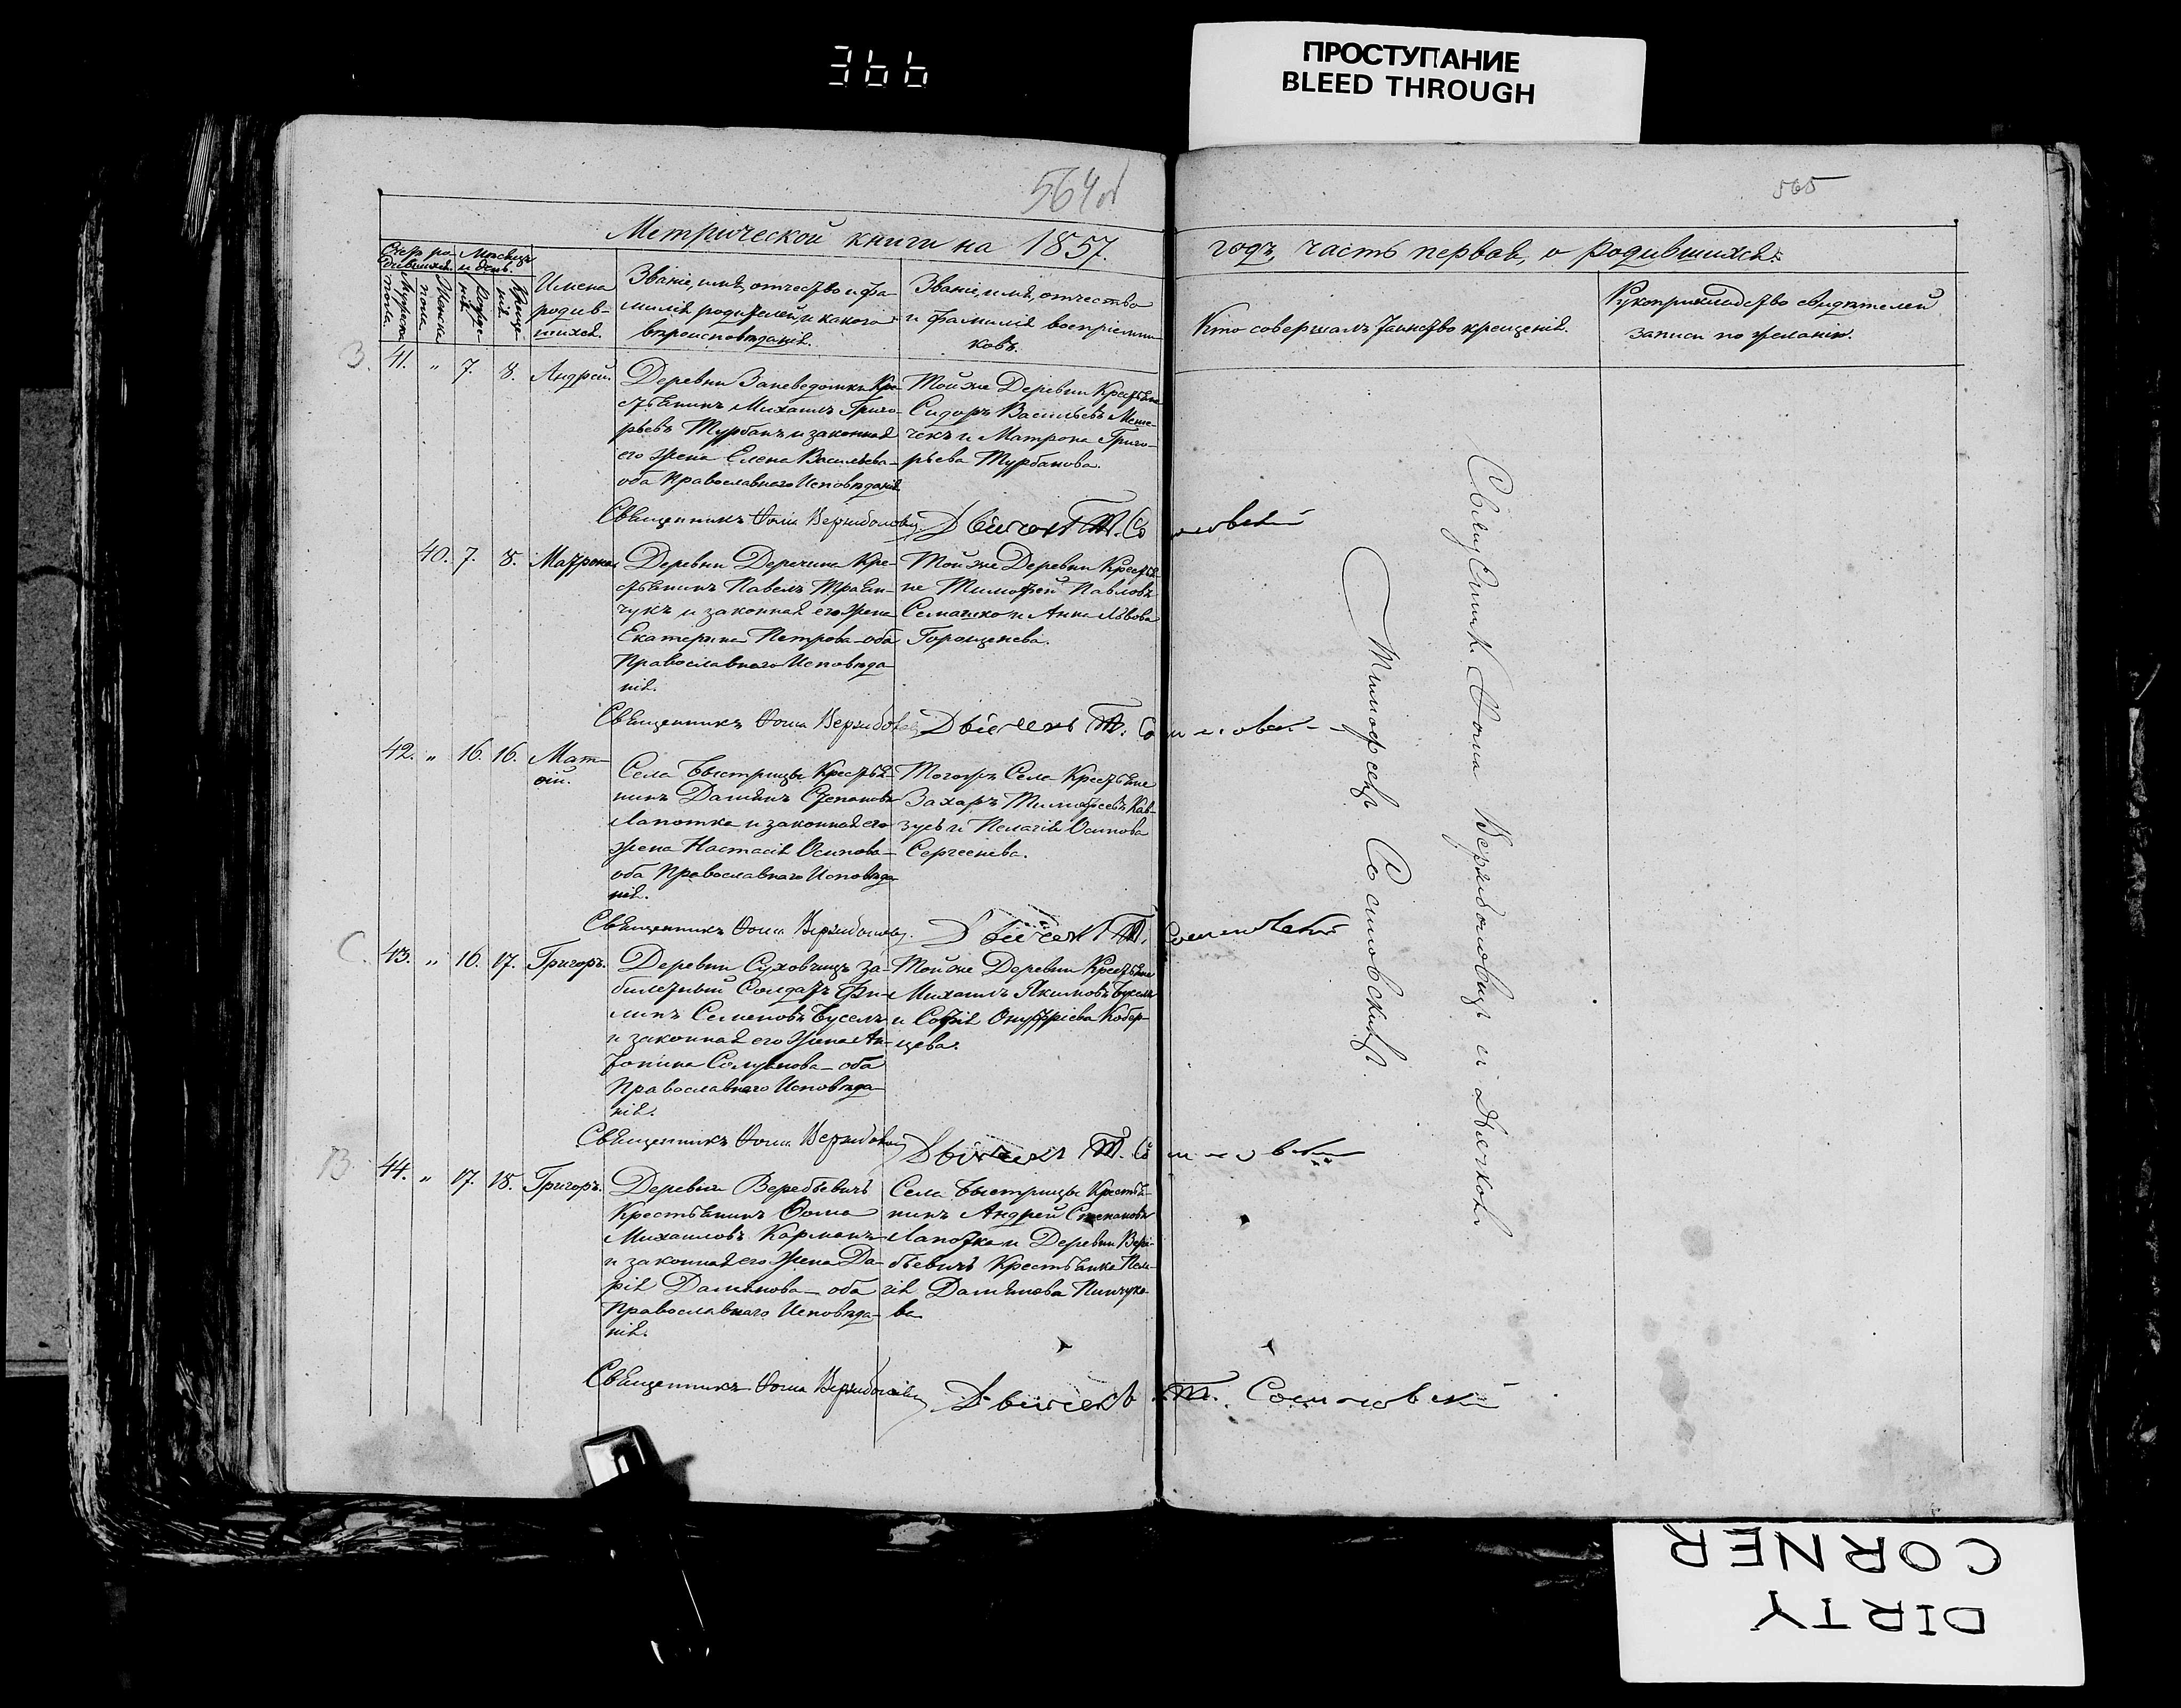 366
ПРОСТУПАНИЕ
BLEED THROUGH
564об
565
Метрической книги на 1857.
годъ, часть первая, о родившихся.
Счетъ ро-
дившихся.
Мѣсяцъ
и день.
Мужеска
пола.
Женска
пола
Рожде-
нія
Креще-
нія
Имена
родив-
шихся.
Званіе, имя, отчество и фа-
милія родителей, и какого
вѣроисповѣданія.
Званіе, имя, отчество
и фамилія воспріемни
ковъ.
Кто совершалъ таинство крещенія.
Рукоприкладство свидѣтелей
записи по желанію.
41. " 7. 8. Андрей.
Деревни Заневедомки Кре
стьянинъ Михаилъ Григо-
рьевъ Турбанъ и законная
его жена Елена Васильева-
оба Православнаго Исповѣданія
Той же Деревни Крестьяне
Сидоръ Васильевъ
чекъ и Матрона Григо-
рьева Турбанова.
Священникъ Ѳома Вержболовичъ
Дьячекъ Т. Сосиновскій
40. 7. 8. Матрона
Деревни Деречина Кре-
стьянинъ Павелъ
чукъ и законная его жена
Екатерина Петрова-оба
Православнаго Исповѣда
нія.
Той же Деревни Крестья
не Тимофей Павловъ
Семашко и Анна Львова
Горощенева.
Священникъ Ѳома Вержболов
Дьячекъ Т. Сосиновскій
42. " 16. 16. Мат-
ѳій.
Села Быстрицы Крестья-
нинъ Даміянъ Степановъ
Лапотка и законная его
жена Настасія Осипова-
оба Православнаго Исповѣда
нія.
Тогожъ Села Крестьяне
Захаръ Тимофеевъ Кав-
зусь и Пелагія Осипова
Сергеенева.
Священникъ Ѳома Вержболовичъ.
Дьячекъ Т. Сосиновскій
С. 43. " 16. 17. Григоръ.
Деревни Суховчицъ за-
билетный Солдатъ Фи-
липъ Семеновъ Буселъ
и законная его жена Ан-
тонина Самуйлова-оба
Православнаго Исповѣда
нія.
Той же Деревни Крестьяне
Михаилъ Якимовъ Буселъ
и Софія Онуффріева Кобер-
цева.
Священникъ Ѳома Вержболович
Дьячекъ Т. Сосиновскій
В 44. " 17. 18. Григоръ.
Деревни Веребьевичъ
Крестьянинъ Ѳома
Михаиловъ Карманъ
и законная его жена Да-
рія Даміянова-оба
Православнаго Исповѣда-
нія.
Села Быстрицы Крестья-
нинъ Андрей Степановъ
Лапотка и Деревни Вере-
бьевичъ Крестьянка Пела-
гія Даміянова Пинчуко-
ва
Священникъ Ѳома Вержболович
Дьячекъ Т. Сосиновскій
Священникъ Ѳома Вержболовичъ и Дьячекъ
Тимофей Сосиновскій.
DIRTY
CORNER